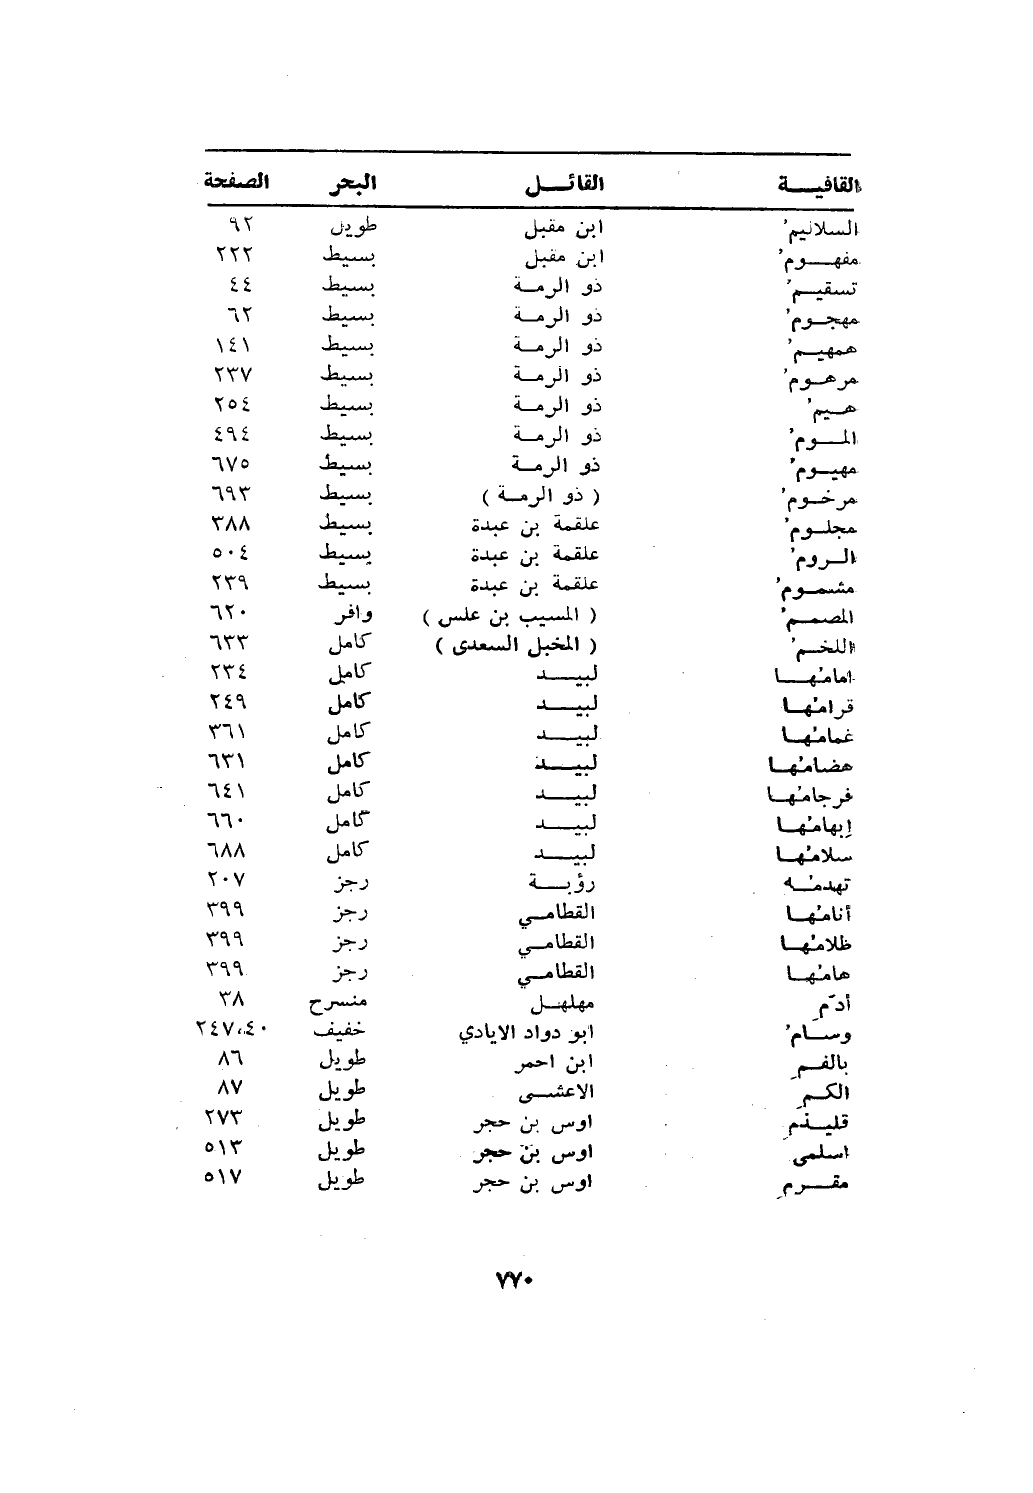 القافيـــة القائـــل البحر الصفحة
السلاليمُ ابن مقبل طويل ٩٢
مفهـــومُ ابن مقبل بسيط ٢٢٢
تسقيـــمُ ذو الرمــة بسيط ٤٤
مهجــومُ ذو الرمــة بسيط ٦٢
همهيــمُ ذو الرمــة بسيط ١٤١
مرهــومُ ذو الرمــة بسيط ٢٣٧
هــيمُ ذو الرمــة بسيط ٢٥٤
المــومُ ذو الرمــة بسيط ٤٩٤
مهيــومُ ذو الرمــة بسيط ٦٧٥
مرخــومُ ( ذو الرمــة ) بسيط ٦٩٣
مجلــومُ علقمة بن عبدة بسيط ٣٨٨
الــرومُ علقمة بن عبدة بسيط ٥٠٤
مشمــومُ علقمة بن عبدة بسيط ٢٣٩
المصمــمُ ( المسيب بن علس ) وافر ٦٢٠
اللخــمُ ( المخبل السعدى ) كامل ٦٣٣
امامُهــا لبيـــد كامل ٢٣٤
قرامُهــا لبيـــد كامل ٢٤٩
غمامُهــا لبيـــد كامل ٣٦١
هضامُهــا لبيـــد كامل ٦٣١
فرجامُهــا لبيـــد كامل ٦٤١
إبهامُهــا لبيـــد كامل ٦٦٠
سلامُهــا لبيـــد كامل ٦٨٨
تهدمُــه رؤبــة رجز ٢٠٧
أنامُهــا القطامــي رجز ٣٩٩
ظلامُهــا القطامــي رجز ٣٩٩
هامُهــا القطامــي رجز ٣٩٩
أدَمِ مهلهــل منسرح ٣٨
وســامُ ابو دواد الايادي خفيف ٢٤٧،٤٠
بالفــمِ ابن احمر طويل ٨٦
الكــمِ الاعشــى طويل ٨٧
اوس بن حجر طويل ٢٧٣
اسلمى اوس بن حجر طويل ٥١٣
مقــرمِ اوس بن حجر طويل ٥١٧
٧٧٠